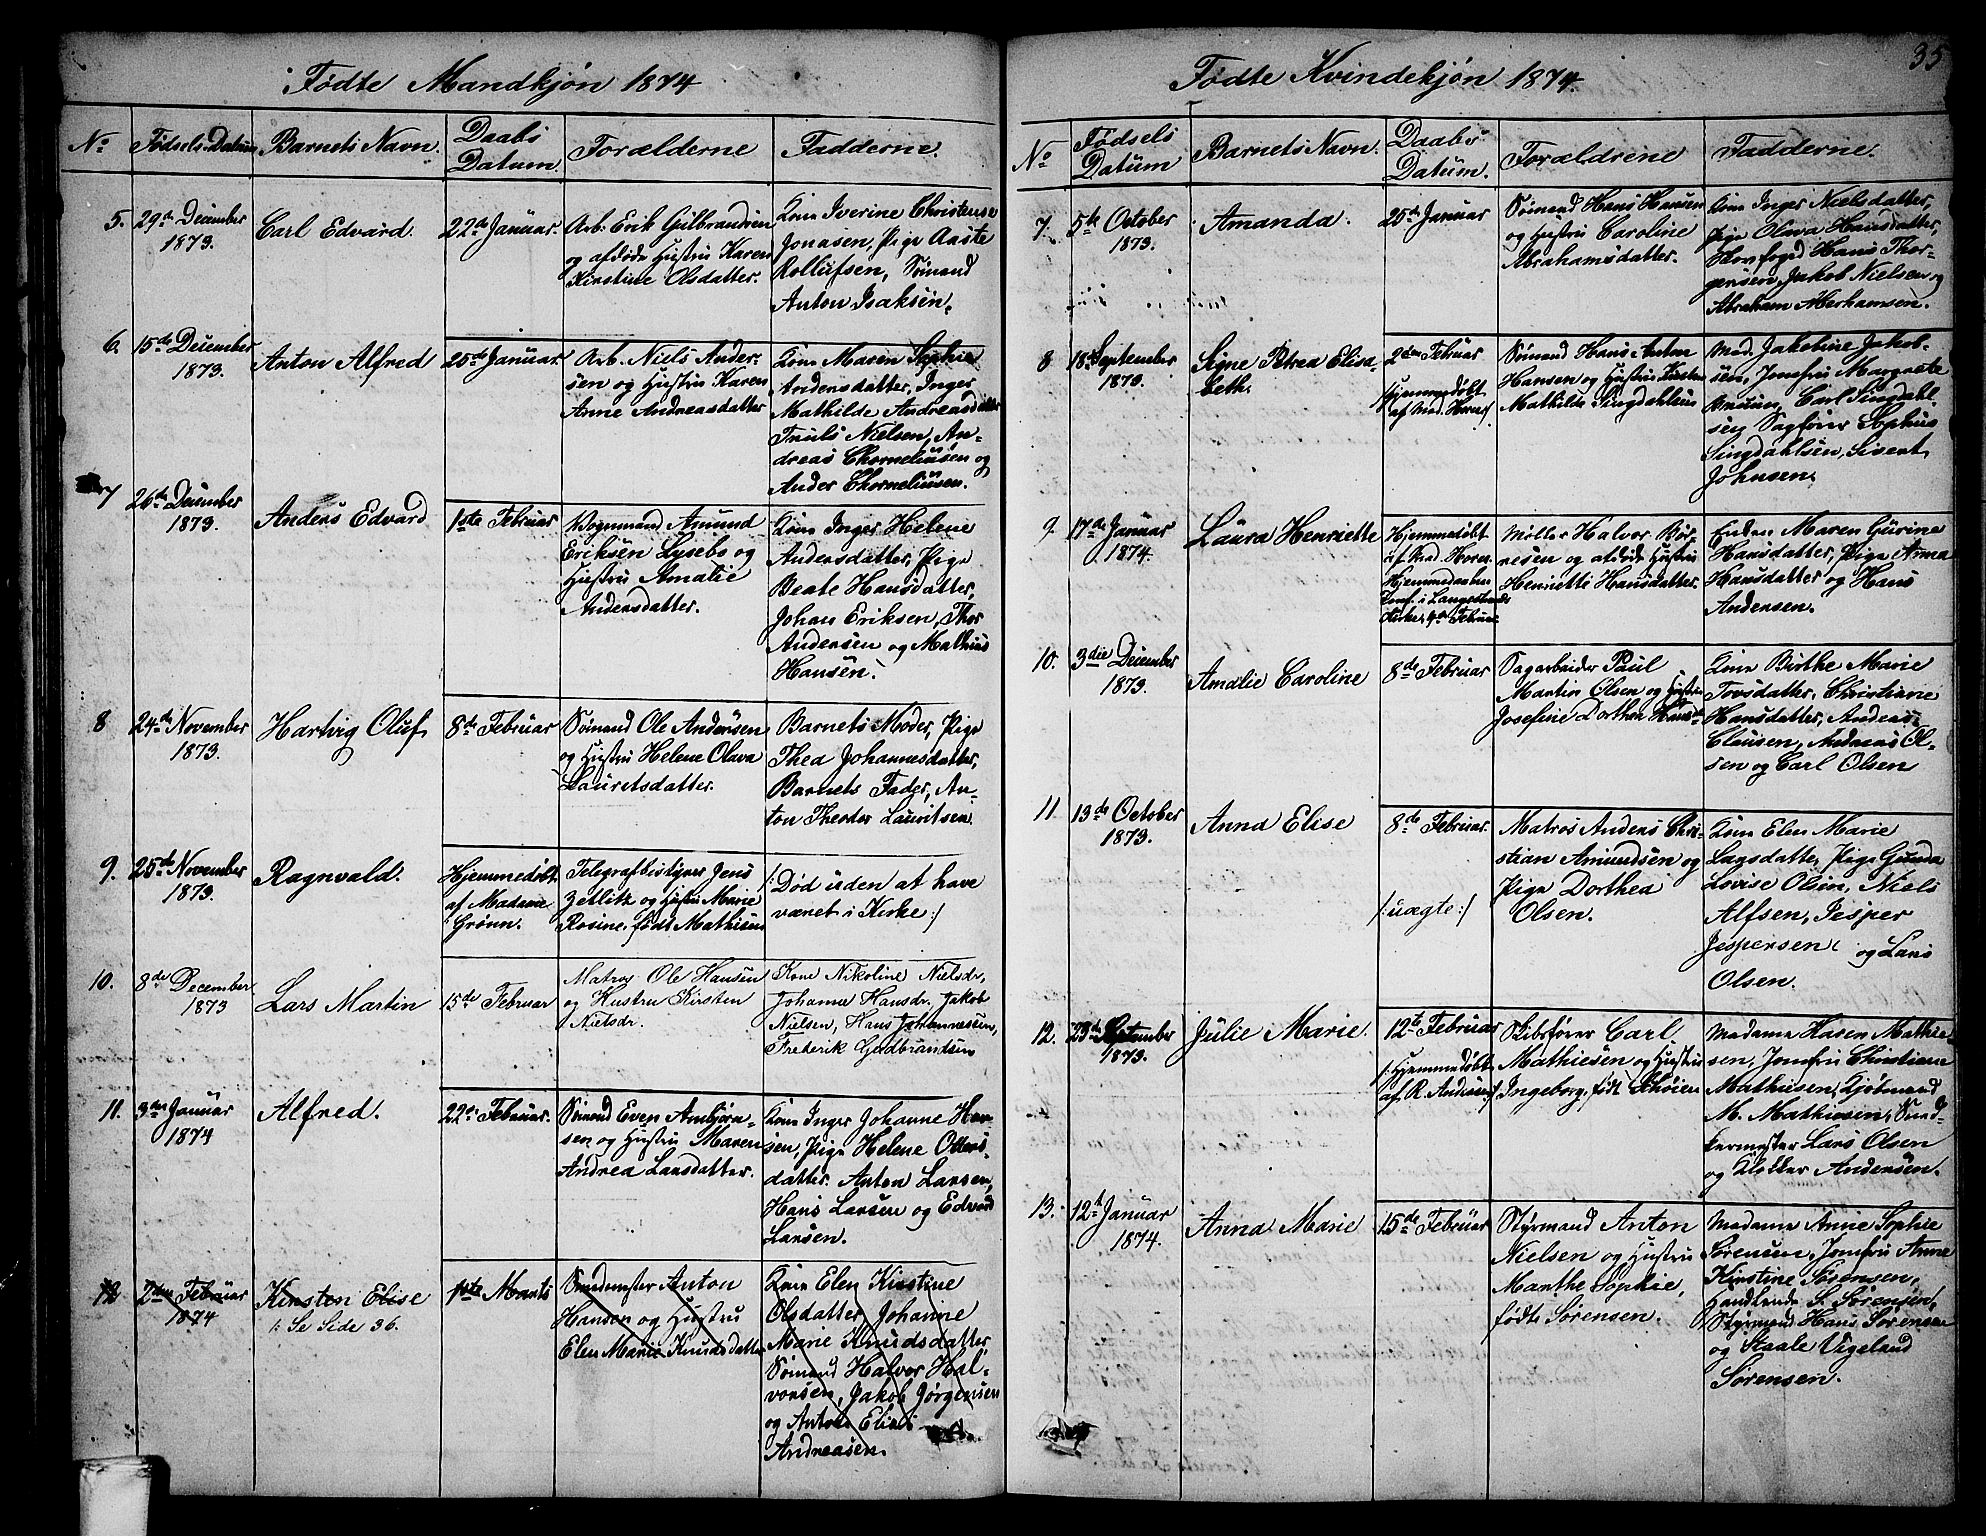 Fødte Mandkjøn 1874
No
Fødsels-Datum
Barnets Navn.
Daabs
Datum.
Forælderne
Fadderne.
5.
29de December
1873.
Carl Edvard.
22de Januar.
Arb. Erik Gulbrandsen
og afdøde Hustru Karen
Kirstine Olsdatter.
Kone Iverine Christense
Jonasen, Pige Aaste
Rollufsen, Sømand
Anton Isaksen.
6.
15de December
1873.
Anton Alfred
25de Januar.
Arb. Niels Ander-
sen og Hustru Karen
Anne Andreasdatter
Kone Maren Sophie
Andersdatter, Inger
Mathilde Andreasdatter
Truls Nielsen, An-
dreas Chorneliusen og
Ander Chorneliusen.
7
26de December
1873.
Anders Edvard
1ste Februar
Vognmand Amund
Eriksen Lysebo og
Hustru Amalie
Andersdatter.
Kone Inger Helene
Andersdatter, Pige
Beate Hansdatter,
Johan Eriksen, Thor
Andersen og Mathias
Hansen.
8
24de November
1873.
Hartvig Oluf
8de Februar
Sømand Ole Andersen
og Hustru Helene Olava
Lauritsdatter.
Barnets Moder, Pige
Thea Johannesdatter,
Barnets Fader, An-
ton Theodor Lauritsen
9.
25de November
1873.
Ragnvald.
Hjemmedøbt
af Madame
Grønn.
Telegrafbestyrer Jens
Zetlitz og Hustru Marie
Rosine, født Mathisen
/: Død uden at have
været i Kirke :/
10.
8de December
1873
Lars Martin
15de Februar
Matros Ole Hansen
og Hustru Kirsten
Nielsdr.
Kone Nikoline Nielsdr,
Johanne Hansdr. Jakob
Nielsen, Hans Johannessen,
Frederik Gudbrandsen
11.
3die Januar
1874
Alfred.
22de Februar.
Sømand Even Ambjørn-
sen og Hustru Maren
Andrea Larsdatter.
Kone Inger Johanne Han-
sen, Pige Helene Olens-
datter. Anton Larsen,
Hans Larsen og Edvard
Larsen.
12
2den Februar
1874
Kirsten Elise
/: Se Side 36.
1ste Marts
Smedmester Anton
Hansen og Hustru
Elen Marie Knudsdatter
Kone Elen Kirstine
Olsdatter, Johanne
Marie Knudsdatter,
Sømand Halvor Hal-
vorsen, Jakob Jørgensen
og Anton Elias
Andreasen.
35
Fødte Kvindekjøn 1874.
No
Fødsels
Datum
Barnets Navn.
Daabs
Datum.
Forældrene
Fadderne.
7.
5te October
1873.
Amanda.
25de Januar
Sømand Hans Hansen
og Hustru Caroline
Abrahamsdatter.
Kone Inger Nielsdatter,
Pige Olava Hansdatter,
Skovfoged Hans Thor-
gersen, Jakob Nielsen og
Abraham Aberhamsen.
8
18de September
1873.
Signe Petrea Elisa-
beth.
2den Februar
/:Hjemmedøbt
af Mad. Horn:/
Sømand Hans Anton
Hansen og Hustru Kirsten
Mathilde Lingdahlsen
Mad. Jakobine Jakob-
sen, Jomfru Margrete
Bruun, Carl Lingdahl-
sen, Sagfører Sophus
Lingdahlsen, Sivert
Johnsen.
9.
17de Januar
1874.
Laura Henriette
Hjemmedøbt
af Mad. Horn.
Hjemmedaaben
conf. i Langestrands
Kirke, 4de Februar
Møller Halvor Bør-
resen og afdøde Hustru
Henriette Hansdatter.
Enken Maren Gurine
Hansdatter, Pige Anna
Hansdatter og Hans
Andersen.
10.
3die December
1873.
Amalie Caroline
8de Februar
Sagarbeider Paul
Martin Olsen og Hustru
Josefine Dorthea Hansdr
Kone Birthe Marie
Torsdatter, Christiane
Hansdatter, Andreas
Clausen, Andreas Ol-
sen og Carl Olsen
11
13de October
1873.
Anna Elise
8de Februar.
/: uægte :/
Matros Anders Chri-
stian Amundsen og
Pige Dorthea
Olsen.
Kone Elen Marie
Larsdatter, Pige Gunda
Lovise Olsen, Niels
Alfsen, Jesper
Jespersen og Lars
Olsen.
12.
23de September
1873.
Julie Marie.
12te Februar
/: Hjemmedøbt
af R. Andersen:/
Skibsfører Carl
Mathiesen og Hustru
Ingeborg, født Schøien
Madame Karen Mathie-
sen, Jomfru Christiane
Mathiesen, Kjøbmand
M. Mathiesen,
Lars Olsen
og Klokker Andersen.
13.
12te Januar
1874.
Anna Marie
15de Februar
Styrmand Anton
Nielsen og Hustru
Marthe Sophie,
født Sørensen.
Madame Anne Sophie
Sørensen, Jomfru Anne
Kirstine Sørensen,
Handlende S. Sørensen,
Styrmand Hans Sørensen
og Staale Vigeland
Sørensen.